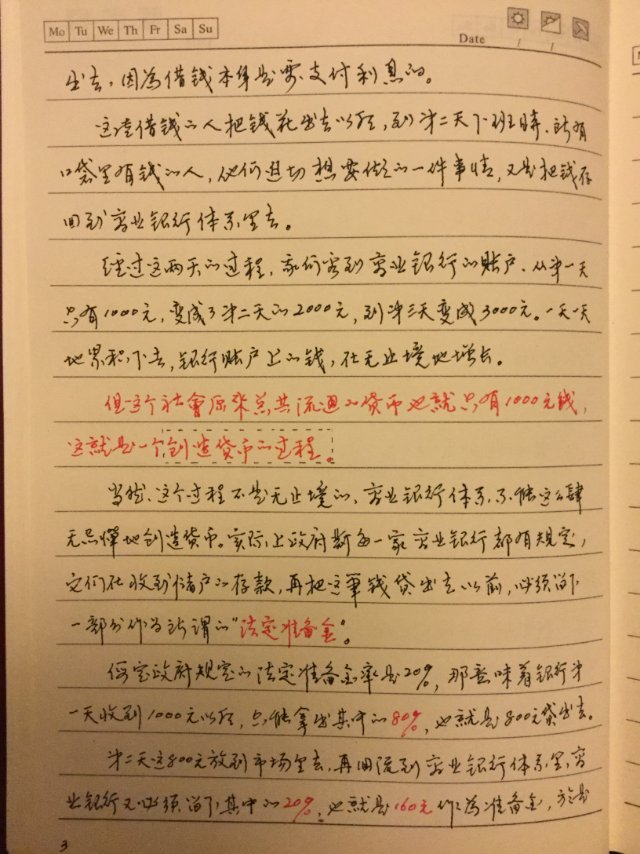 Mo Tu We Th Fr Sa Su
Date / /
出去，因為借钱本身是要支付利息的。
这些借钱的人把钱花出去以后，到第二天下班時，所有
口袋里有钱的人，他们迫切想要做的一件事情，又是把钱存
回到商业银行体系里去。
经过这两天的过程，我们看到商业银行的账户，从第一天
只有1000元，变成了第二天的2000元，到第三天变成3000元。一天一天
地累积下去，银行账户上的钱，在无止境地增长。
但这个社會原来总共流通的货币也就只有1000元钱，
这就是一个创造货币的过程。
当然，这个过程不是无止境的，商业银行体系不能这么肆
无忌憚地创造货币。实际上政府對每一家商业银行都有规定，
它们在收到储户的存款，再把这笔钱贷出去以前，必须留下
一部分作为所谓的“法定准备金”。
假定政府规定的法定准备金率是20%，那意味着银行第
一天收到1000元以后，只能拿出其中的80%，也就是800元贷出去。
第二天这800元放到市场里去，再回流到商业银行体系里，商
业银行又必须留下其中的20%，也就是160元作為准备金，於是
3